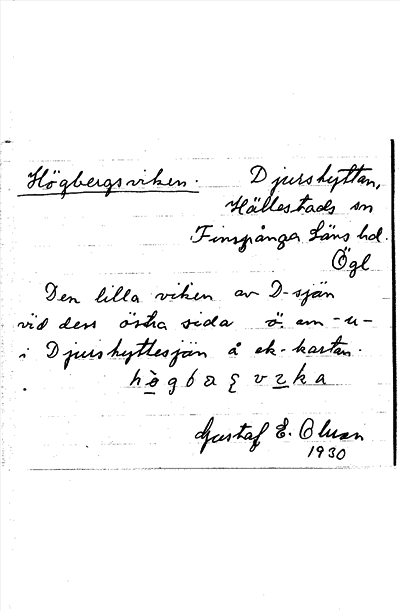 Högbergsviken. Djurshyttan,
Hällestads sn
Finspånga Läns hd.
Ögl
Den lilla viken av D-sjön
vid dess östra sida ö. om -u-
i Djurshyttesjön å ek-kartan.
Gustaf E. Olsson
1930